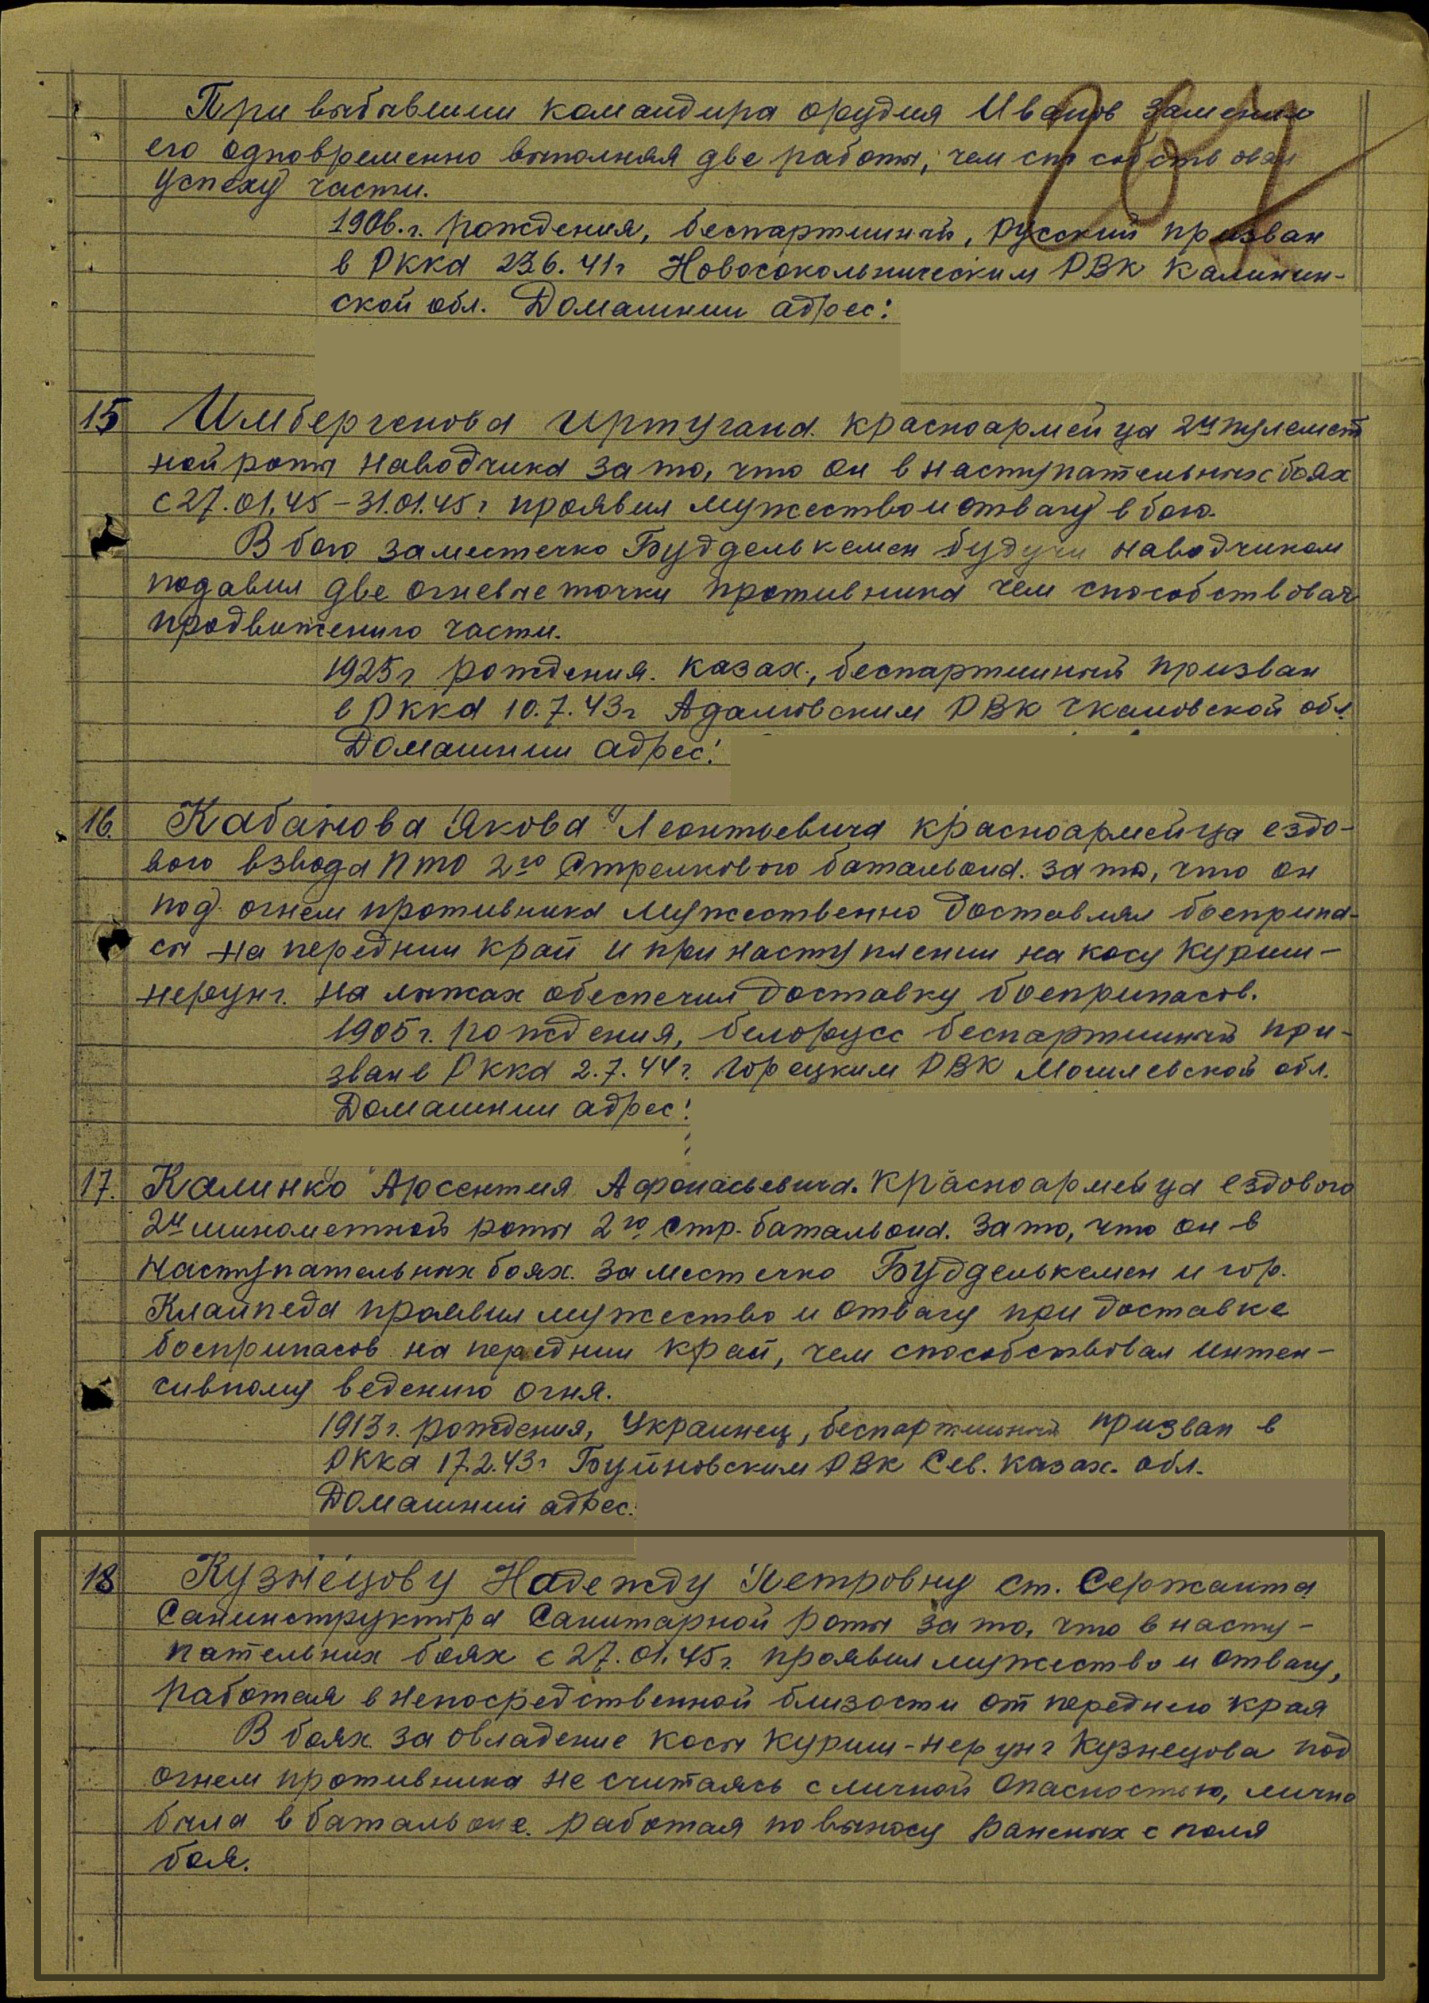 204
При выбавшим командира орудия Иванов заменил
его одновременно выполняя две работы, чем способствовал
успеху части.
1906.г. рождения, беспартийный, русский призван
в РККА 23.6.41г Новосокольническим РВК Калинин-
ской обл. Домашний адрес:
15 Имбергенова Иртугана. красноармейца 2й пулемет
ной роты наводчика за то, что он в наступательных боях
с 27.01.45 – 31.01.45г. проявил мужество и отвагу в бою.
В бою за местечко Будделькемен будучи наводчиком
подавил две огневые точки противника чем способствовал
продвижению части.
1925г рождения. казах., беспартийный призван
в РККА 10.7.43г Адамовским РВК Чкаловской обл.
Домашний адрес:
16. Кабанова Якова Леонтьевича красноармейца ездо-
вого взвода ПТО 2го Стрелкового батальона. за то, что он
под огнем противника мужественно доставлял боеприпа-
сы на передний край и при наступлении на косу Куриш-
нерунг. на лыжах обеспечил доставку боеприпасов.
1905г. рождения, белорусс беспартийный при-
зван в РККА 2.7.44г. Горецким РВК Могилевской обл.
Домашний адрес:
17. Калинко Арсентия Афонасьевича. Красноармейца ездового
2й минометной роты 2го стр. батальона. За то, что он в
наступательных боях. за местечко Будделькемен и гор.
Клайпеда проявил мужество и отвагу при доставке
боеприпасов на передний край, чем способствовал интен-
сивному ведению огня.
1913г. рождения, Украинец, беспартийный призван в
РККА 17.2.43г РВК Сев. казах. обл.
Домашний адрес:
18 Кузнецову Надежду Петровну ст. Сержанта
Санинструктора Санитарной роты за то, что в насту-
пательных боях с 27.01.45г. проявил мужество и отвагу,
работая в непосредственной близости от переднего края
В боях за овладение косы Куриш-нерунг Кузнецова под
огнем противника не считаясь с личной опасностью, лично
была в батальоне. работая по выносу раненых с поля
боя.